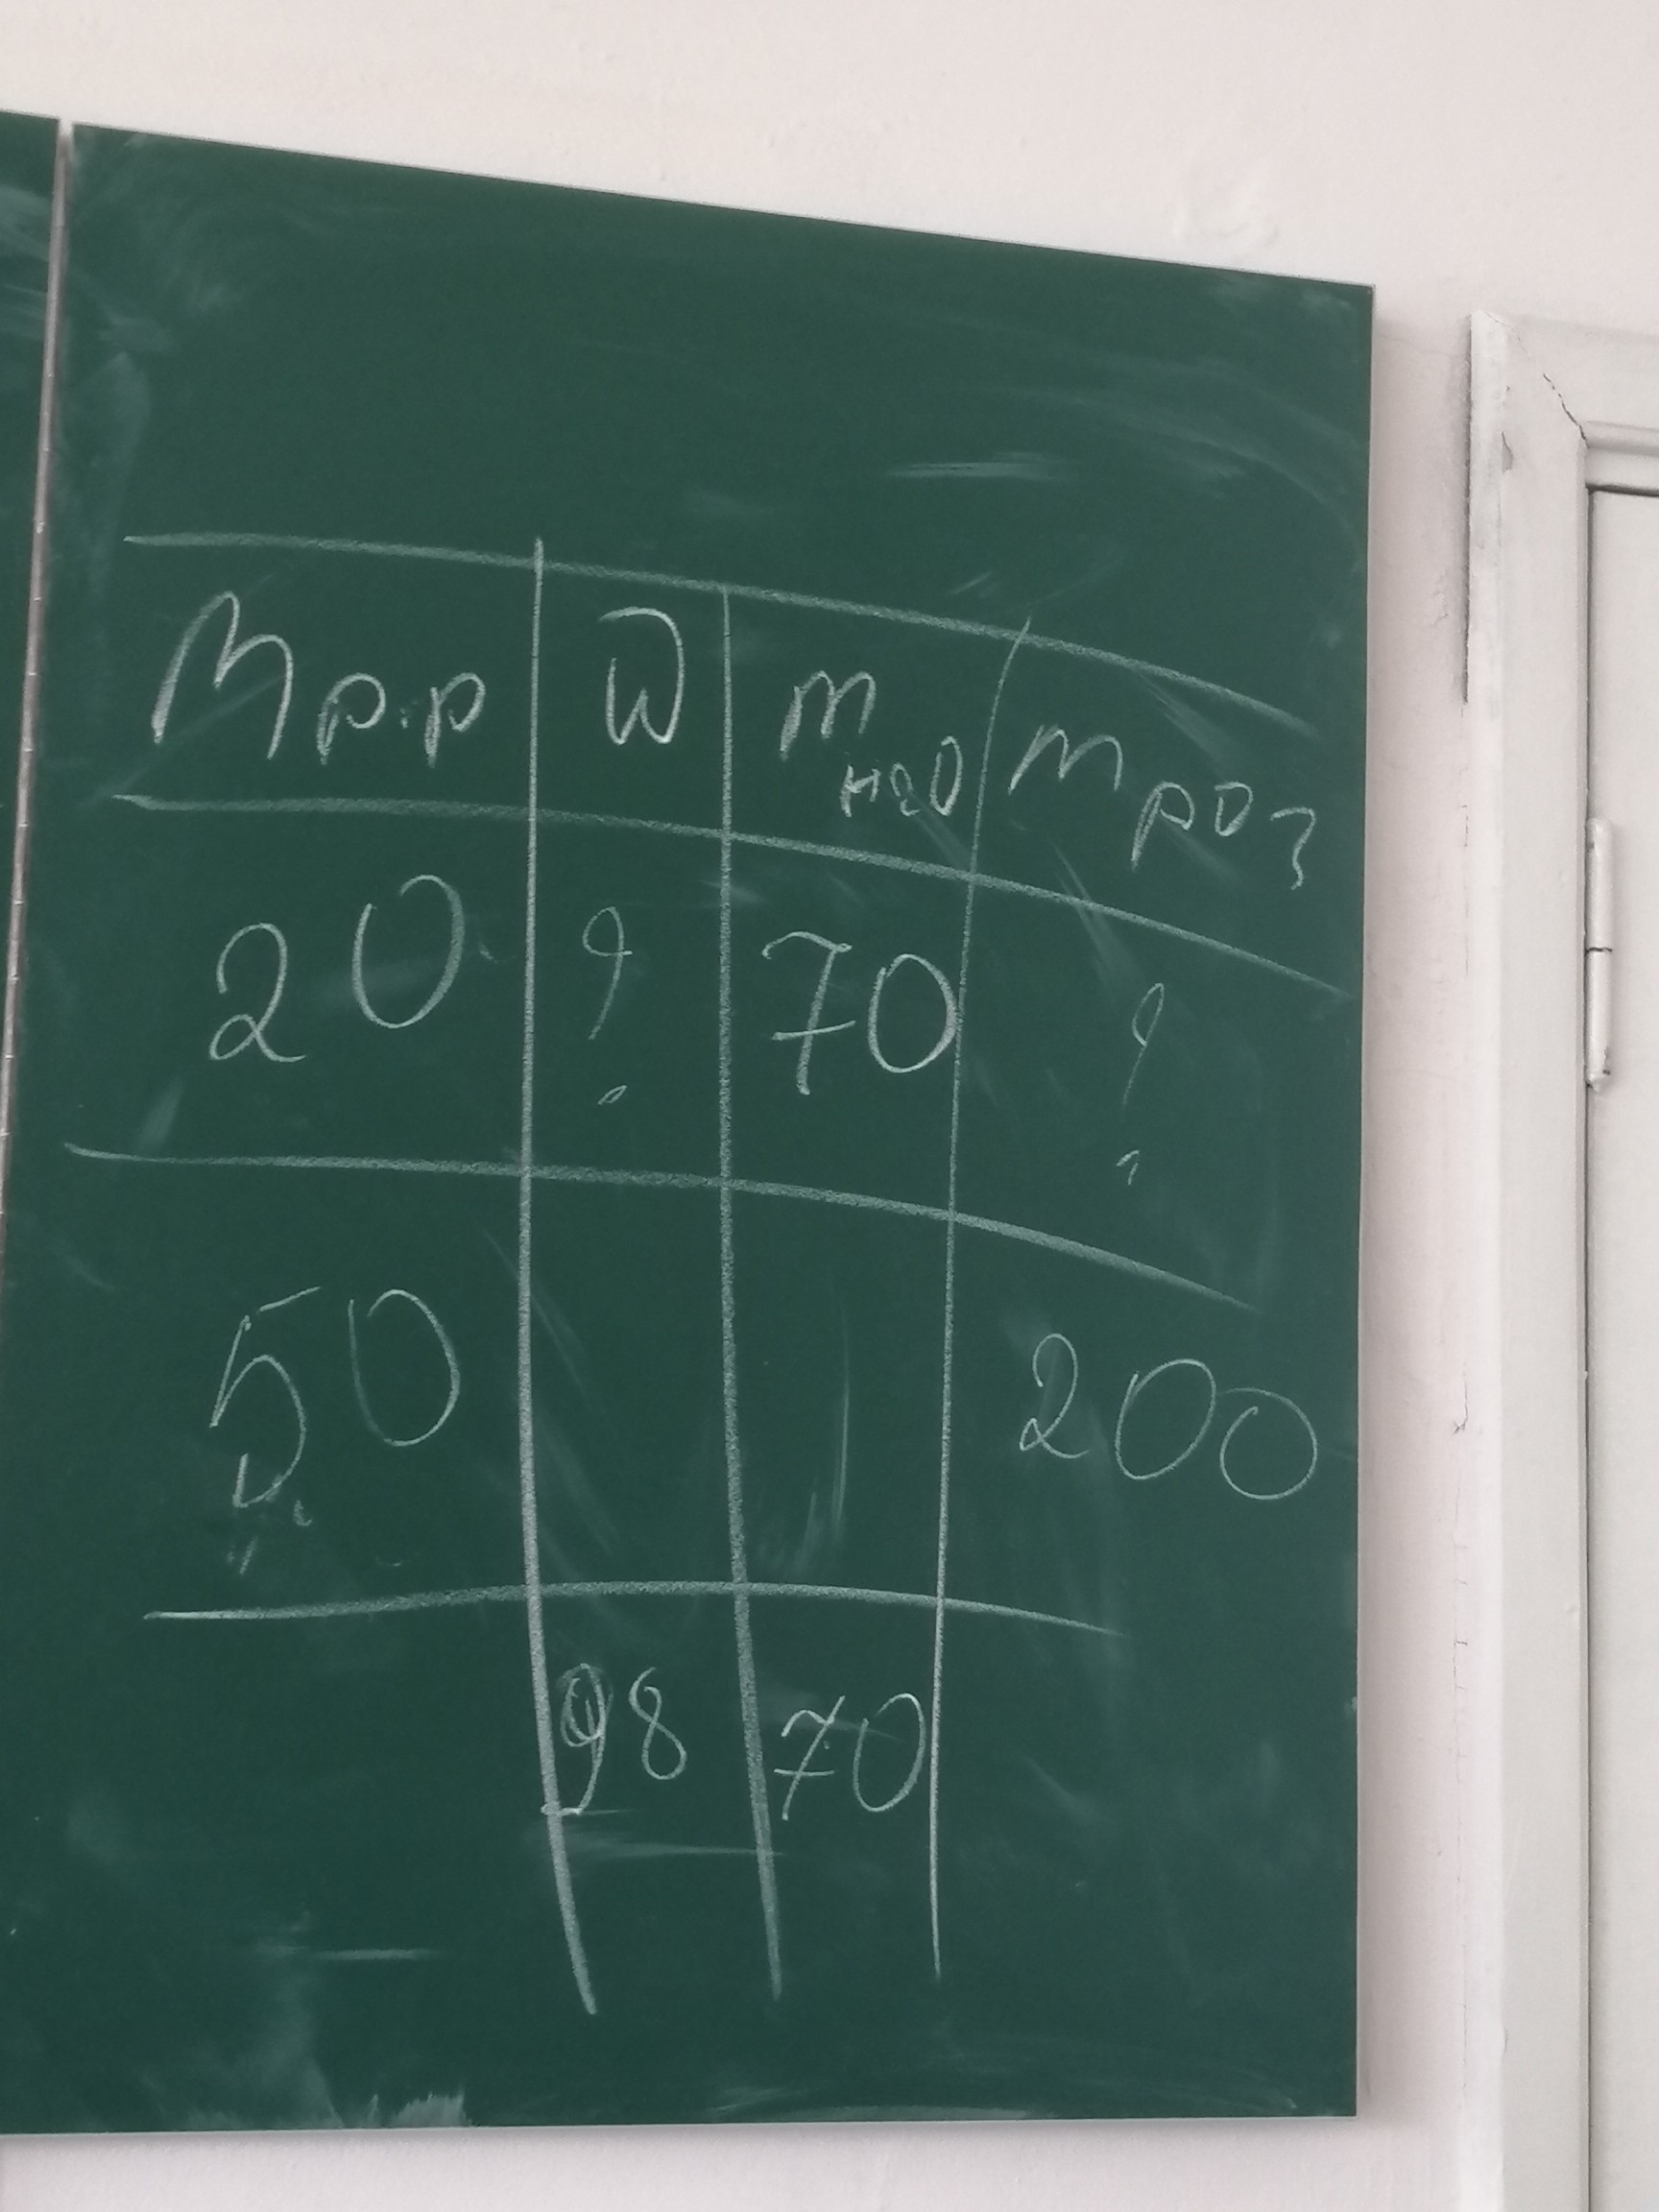 m р.р ω m H2O m роз
20 ? 70 ?
50 200
98 70